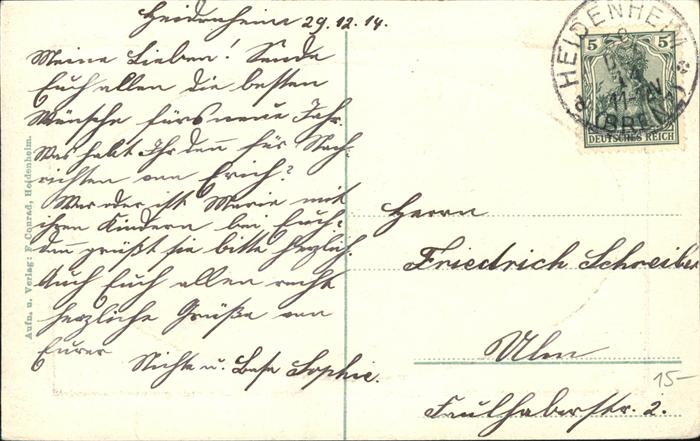 Heidenheim 29.12.14.
Meine Lieben! Sende
Euch allen die besten
Wünsche fürs neue Jahr.
Was habt Ihr denn für Nach-
richten von Erich?
War oder ist Marie mit
ihren Kindern bei Euch?
dann grüßt sie bitte herzlich.
Auch Euch allen recht
herzliche Grüße von
Eurer
Nichte u. Base Sophie.
Aufn. u. Verlag: F. Conrad, Heidenheim.
HEIDENHEIM
(BRENZ)
5 5
DEUTSCHES REICH
Herrn
Friedrich Schreiber
Ulm
Faulhaberstr. 2.
15-